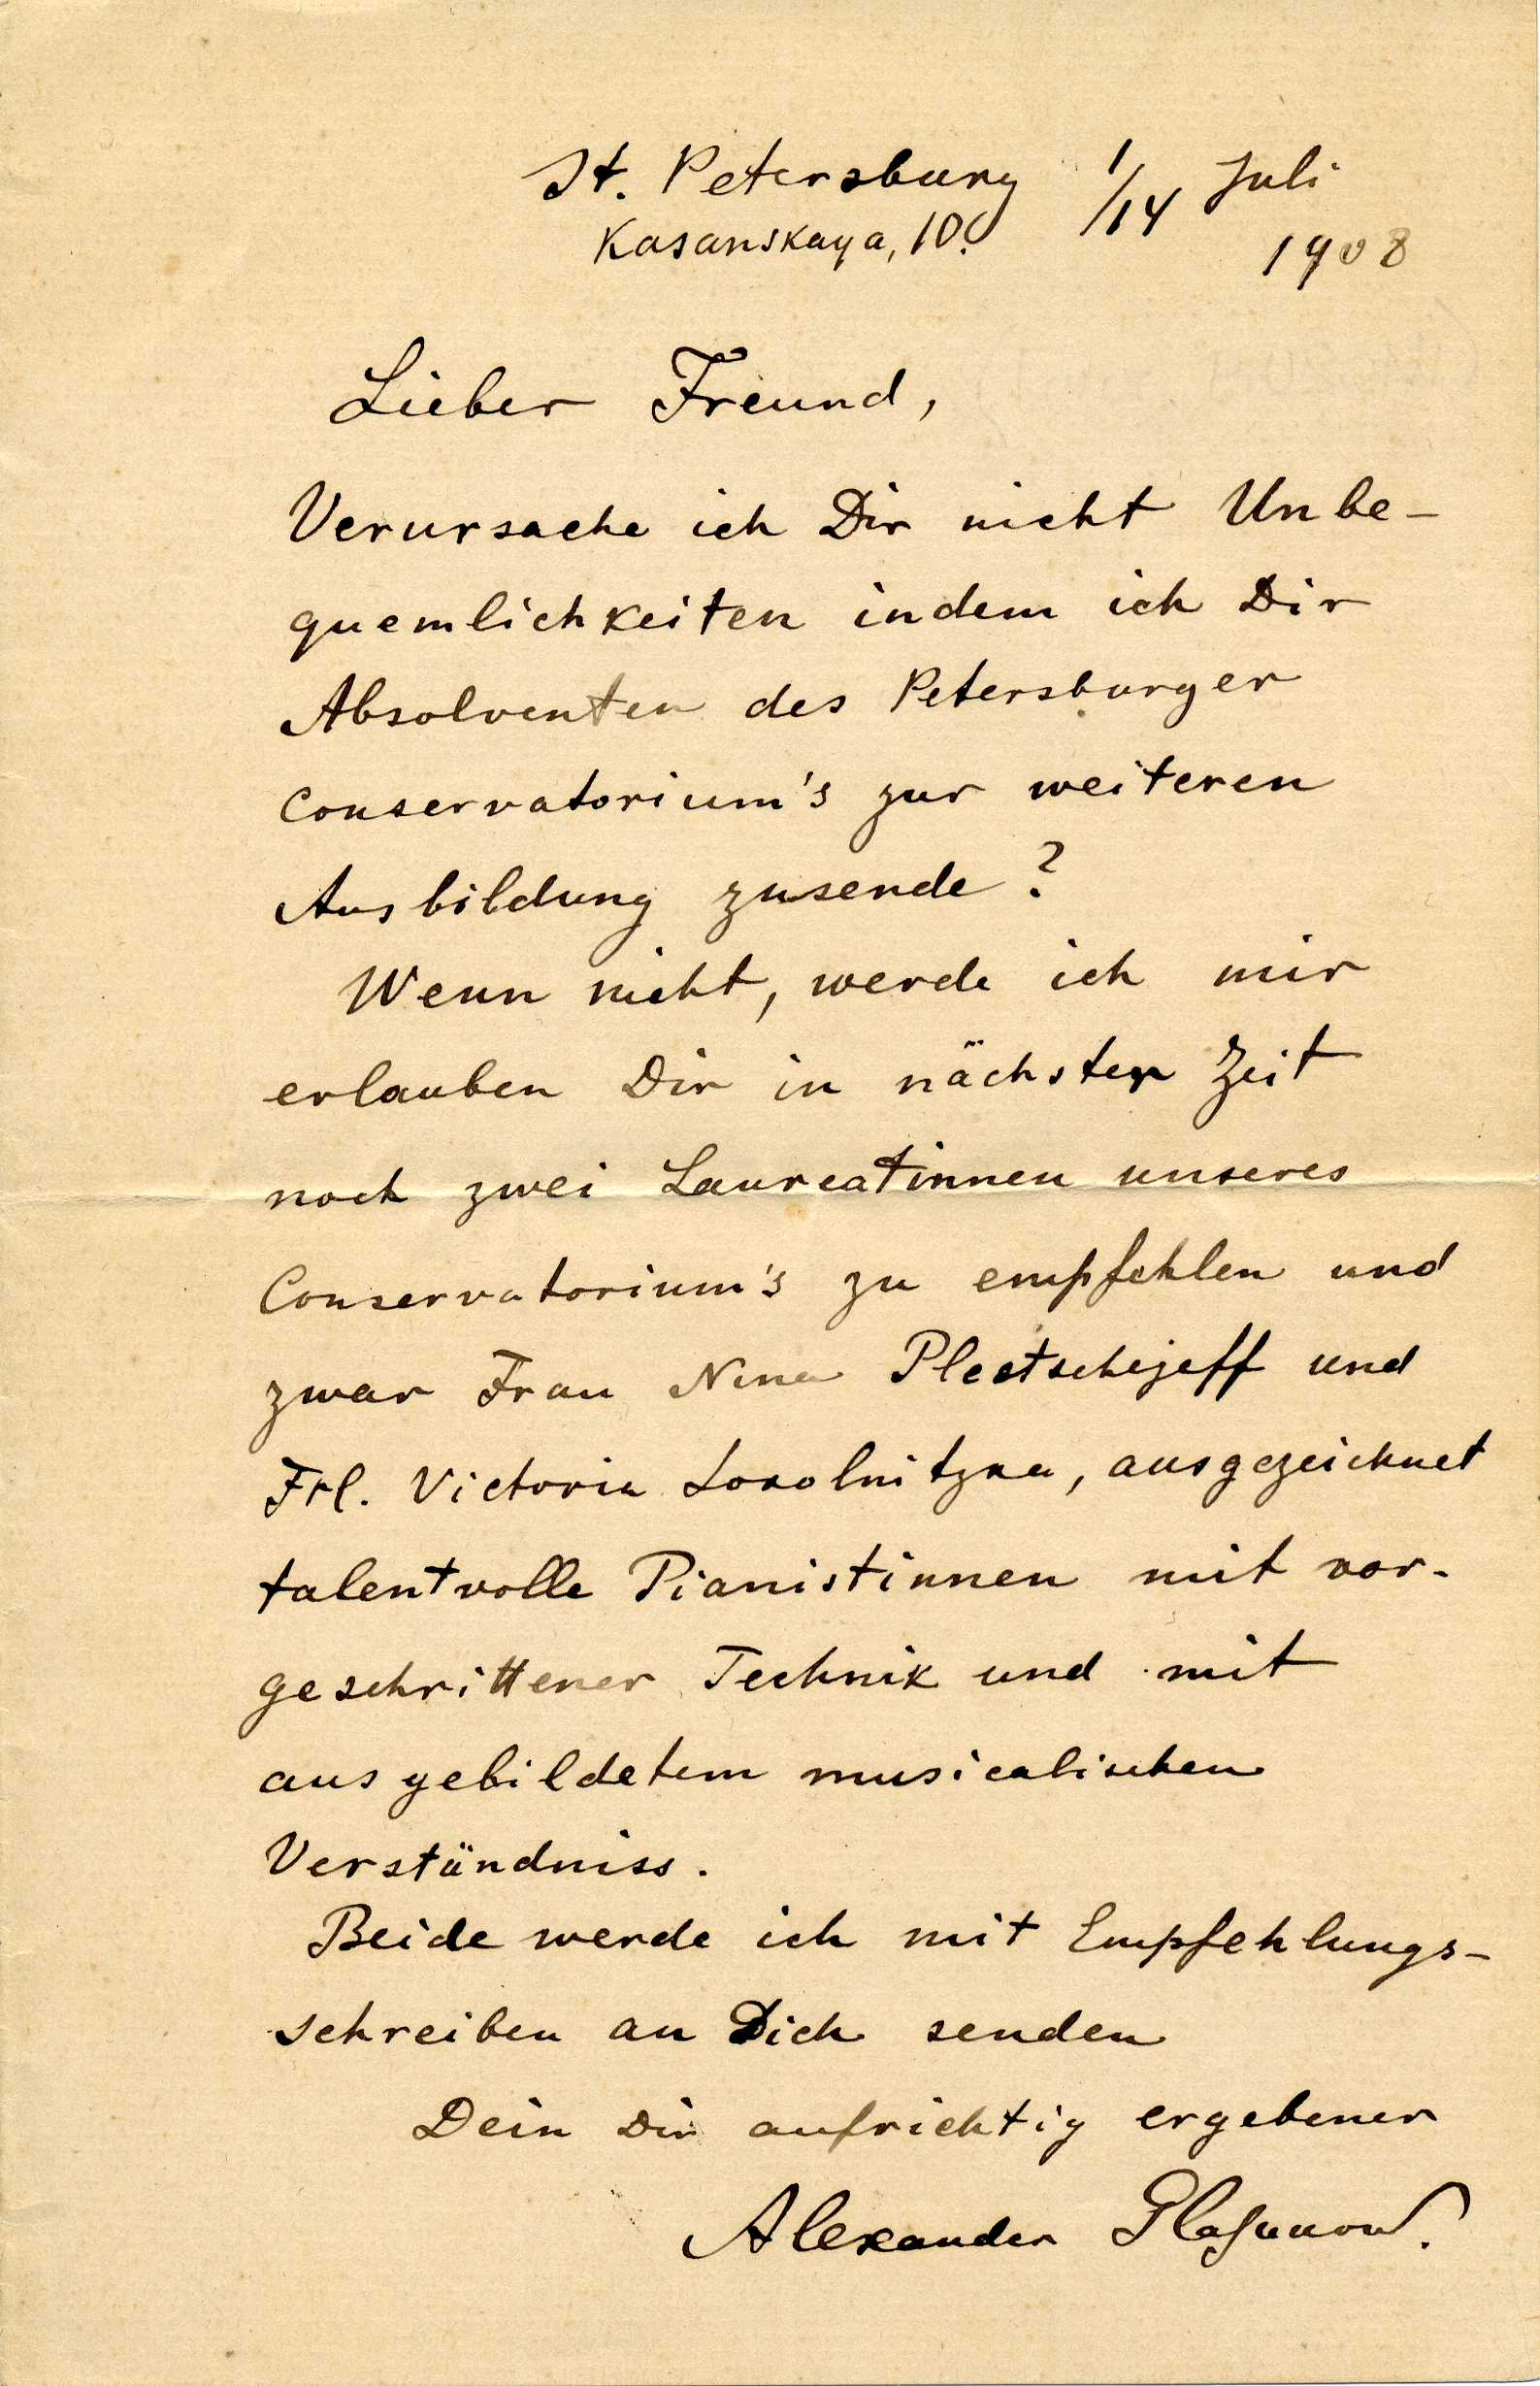 St. Petersburg 1/14 Juli
Kasanskaya, 10. 1908
Lieber Freund,
Verursache ich Dir nicht Unbe-
quemlichkeiten indem ich Dir
Absolventen des Petersburger
Conservatorium's zur weiteren
Ausbildung zusende?
Wenn nicht, werde ich mir
erlauben Dir in nächster Zeit
noch zwei Laureatinnen unseres
Conservatorium's zu empfehlen und
zwar Frau Nina Pleetschejeff und
Frl. Victoria Sokolnitzka, ausgezeichnet
talentvolle Pianistinnen mit vor-
geschrittener Technik und mit
ausgebildetem musicalischen
Verständniss.
Beide werde ich mit Empfehlungs-
schreiben an Dich senden
Dein Dir aufrichtig ergebener
Alexander Glasunow.